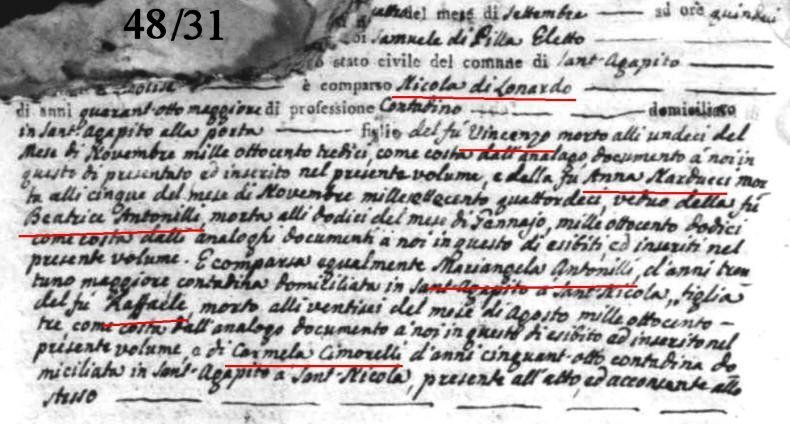 48/31
del mese di Settembre ad ore quindeci
Samuele di Pilla Eletto
stato civile del comune di Sant-Agapito
è comparso Nicola di Lonardo
di anni quarant-otto maggiore di professione Contadino domiciliato
in Sant-Agapito alla porta figlio del fú Vincenzo morto alli undeci del
Mese di Novembre mille ottocento tredici, come costa dall'analago documento a noi in
questo di presentato ed inserito nel presente volume, e della fú Anna Narducci mor
ta alli cinque del mese di Novembre mille ottocento quattordeci, veduo della fú
Beatrice Antonilli, morta alli dodici del mese di Gennajo, mille ottocento dodici
come costa dalli analoghi documenti a noi in questo di esibiti ed inseriti nel
presente volume. E comparsa egualmente Mariangela Antonilli, d'anni tren
tuno maggiore contadina domiciliata in Sant-Agapito a Sant-Nicola, figlia
del fú Raffaele, morto alli ventisei del mese di Agosto mille ottocento-
tre come costa dall'analogo documento a noi in questo di esibito ed inserito nel
presente volume, e di Carmela Cimorelli d'anni cinquant-otto contadina do
miciliata in Sant-Agapito a Sant-Nicola, presente all'atto, ed acconsente allo
stesso